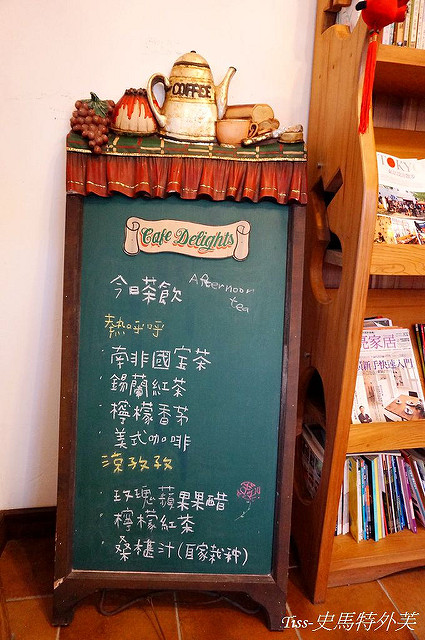 COFFEE
Cafe Delights
今日茶飲
Afternoon
tea
熱呼呼
南非國宝茶
錫蘭紅茶
檸檬香茅
美式咖啡
涼孜孜
玫瑰蘋果果醋
檸檬紅茶
桑椹汁(自家栽种)
TOKY
家居
新手快速入門
Tiss-史馬特外芙